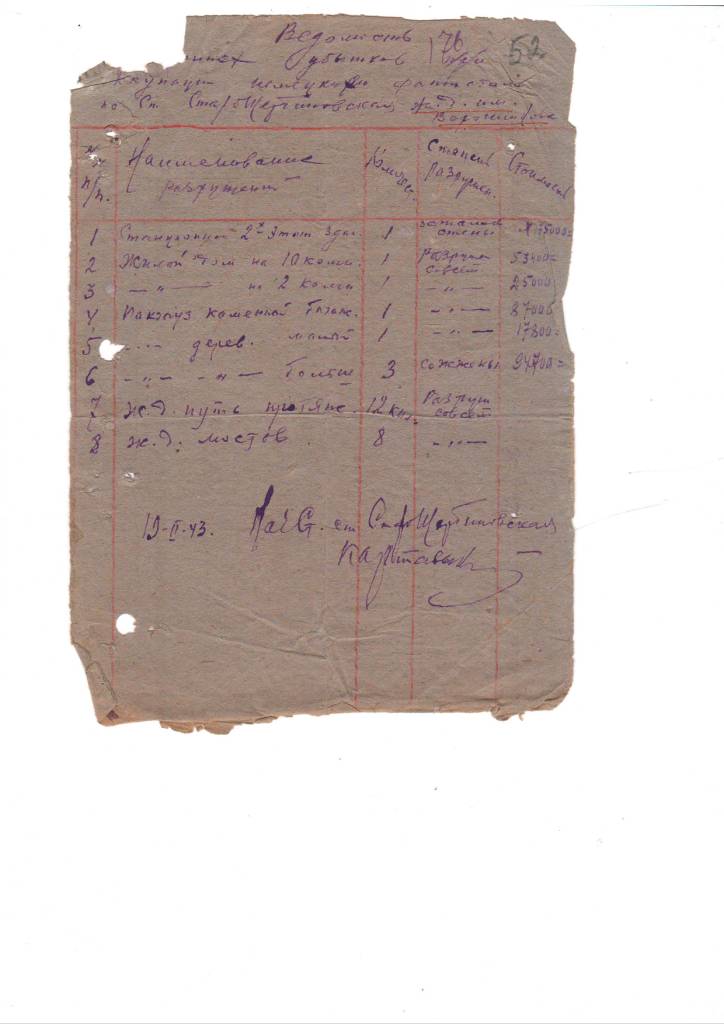 Ведомость
убытков 176 52
немецким
по Ст. Старо Щербиновская ж.д. им.
Ворошилова
№ п/п. Наименование разрушений Колич. Степень Разрушен. Стоимость
1 Станционный 2х этаж здан. 1 остались стены 175000=
2 Жилой дом на 10 комн. 1 Разруш совсем 53400=
3 —„— на 2 комн 1 —„— 25000
4 Пакгауз каменной 1 —„— 87000
5 -„- дерев. малой 1 —„— 17800=
6 -„- -„- больш 3 сожжены 94700=
7 ж.д. путь протяж. 12 км. Разруш совсем
8 ж.д. мостов 8 —„—
19-II-43. Нач Ст. ст Старо Щербиновская